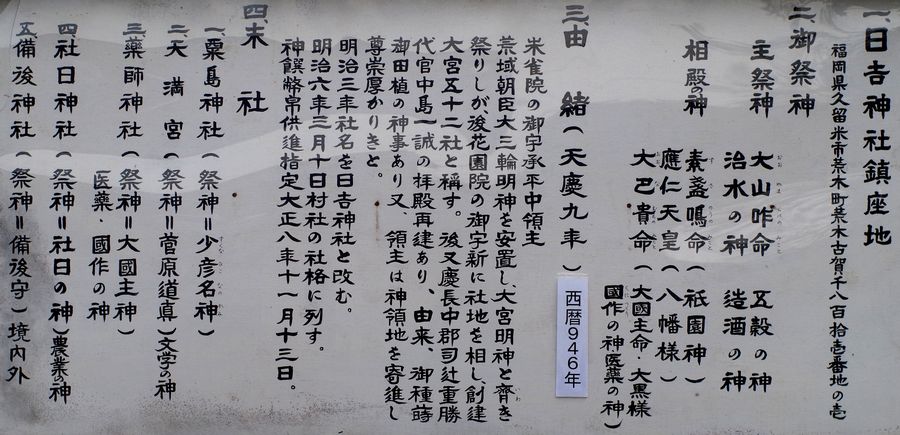 一、日吉神社鎮座地
福岡県久留米市荒木町荒木古賀千八百拾壱番地の壱
二、御祭神
主祭神 大山咋命 五穀の神
治水の神 造酒の神
相殿の神 素盞鳴命（祇園神）
應仁天皇（八幡様）
大己貴命（大國主命・大黒様
國作の神医薬の神）
三、由緒（天慶九年）
西暦946年
米雀院の御宇承平中領主
荒域朝臣大三輪明神を安置し、大宮明神と齊き
祭りしが後花園院の御宇新に社地を相し、創建
大宮五十二社と稱す。後又慶長中郡司辻重勝
代官中島一誠の拝殿再建あり、由来、御種蒔
御田植の神事あり又、領主は神領地を寄進し
尊崇厚かりきと。
明治三年社名を日吉神社と改む。
明治六年三月十日村社の社格に列す。
神饌幣帛供進指定大正八年十一月十三日。
四、末社
一、粟島神社（祭神＝少彦名神）
二、天満宮（祭神＝菅原道真）文学の神
三、薬師神社（祭神＝大國主神）
医薬・國作の神
四、社日神社（祭神＝社日の神）農業の神
五、備後神社（祭神＝備後守）境内外